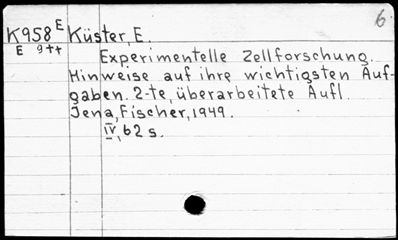 6
K958 E Küster, E.
E 9++
Experimentelle Zellforschung.
Hinweise auf ihre wichtigsten Auf-
gaben. 2-te, überarbeitete Aufl.
Jena, Fischer, 1949.
IV, 62 s.